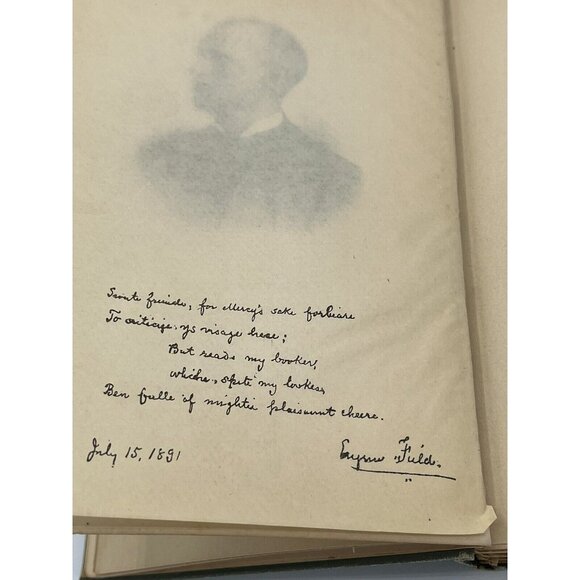 Sweete friends, for Mercy's sake forbeare
To criticize ys visage here;
But reade my bookes,
which, spite my lookes,
Ben fulle of mightie plaisaunt cheere.
July 15, 1891
Eugene Field.